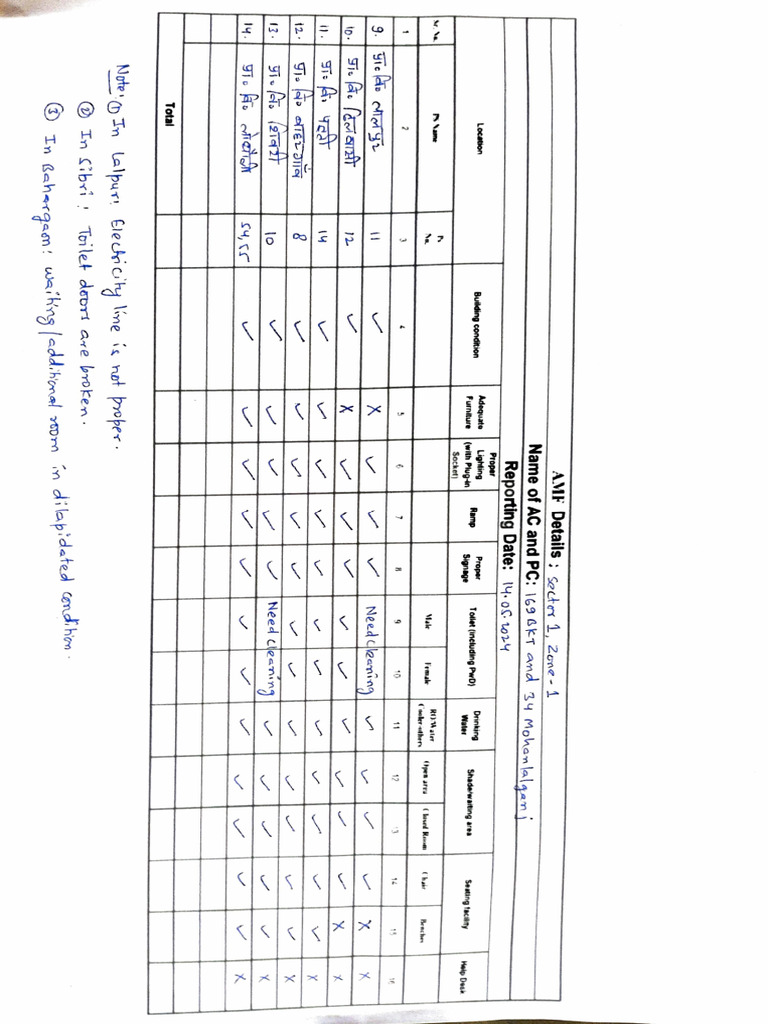 AMF Details : Sector 1, Zone - 1
Name of AC and PC: 169 BKT and 34 Mohanlalganj
Reporting Date: 14.05.2024
Location Building condition Adequate Furniture Proper Lighting (with Plug-in Socket) Ramp Proper Signage Toilet (including PwD) Drinking Water Shade/waiting area Seating facility Help Desk
Sr. No. Ps Name Ps No. Male Female RO/Water Cooler/others Open area Closed Room Chair Benches
1 2 3 4 5 6 7 8 9 10 11 12 13 14 15 16
9. प्रा० वि० लालपुर 11 ✓ X ✓ ✓ ✓ Need cleaning ✓ ✓ ✓ ✓ X X
10. प्रा० वि० दिलवासी 12 ✓ X ✓ ✓ ✓ ✓ ✓ ✓ ✓ ✓ ✓ X X
11. प्रा० वि० परही 14 ✓ ✓ ✓ ✓ ✓ ✓ ✓ ✓ ✓ ✓ ✓ ✓ X
12. प्रा० वि० बाहरगाँव 8 ✓ ✓ ✓ ✓ ✓ ✓ ✓ ✓ ✓ ✓ ✓ ✓ X
13. प्रा० वि० शिवरी 10 ✓ ✓ ✓ ✓ ✓ Need cleaning ✓ ✓ ✓ ✓ ✓ X
14. प्रा० वि० 54,55 ✓ ✓ ✓ ✓ ✓ ✓ ✓ ✓ ✓ ✓ ✓ ✓ X
Total
Note: ① In Lalpur: Electricity line is not proper.
② In Sibri: Toilet doors are broken.
③ In Bahargaon: waiting/additional room in dilapidated condition.